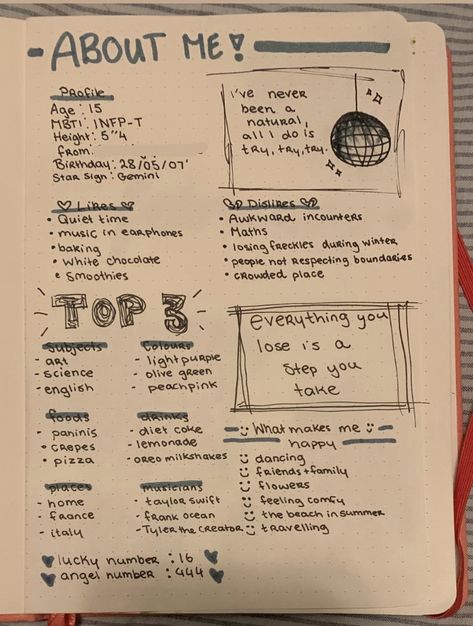 ABOUT ME!
Profile
Age : 15
MBTI : INFP-T
Height: 5"4
From:
Birthday: 28/05/07'
Star sign: Gemini
i've never
been a
natural,
all I do is
try, try, try.
Likes
• Quiet time
• music in earphones
• baking
• white chocolate
• smoothies
Dislikes
• Awkward incounters
• Maths
• losing freckles during winter
• people not respecting boundaries
• crowded place
TOP 3
Subjects
- art
- science
- english
Colours
- light purple
- olive green
- peach pink
everything you
lose is a
step you
take
foods
- paninis
• crepes
• pizza
drinks
- diet coke
- lemonade
- oreo milkshakes
places
- home
- france
- italy
musicians
- taylor swift
- frank ocean
- Tyler the creator
What makes me
happy
dancing
friends + family
flowers
feeling comfy
the beach in summer
travelling
lucky number : 16
angel number : 444